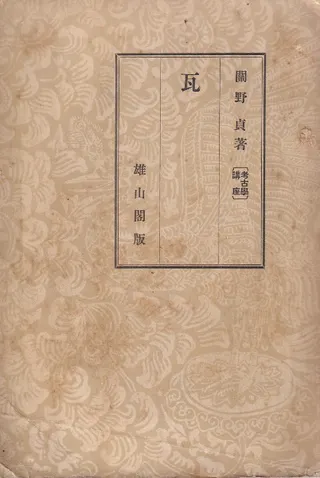 關野貞著
〔考古學講座〕
瓦
雄山閣版